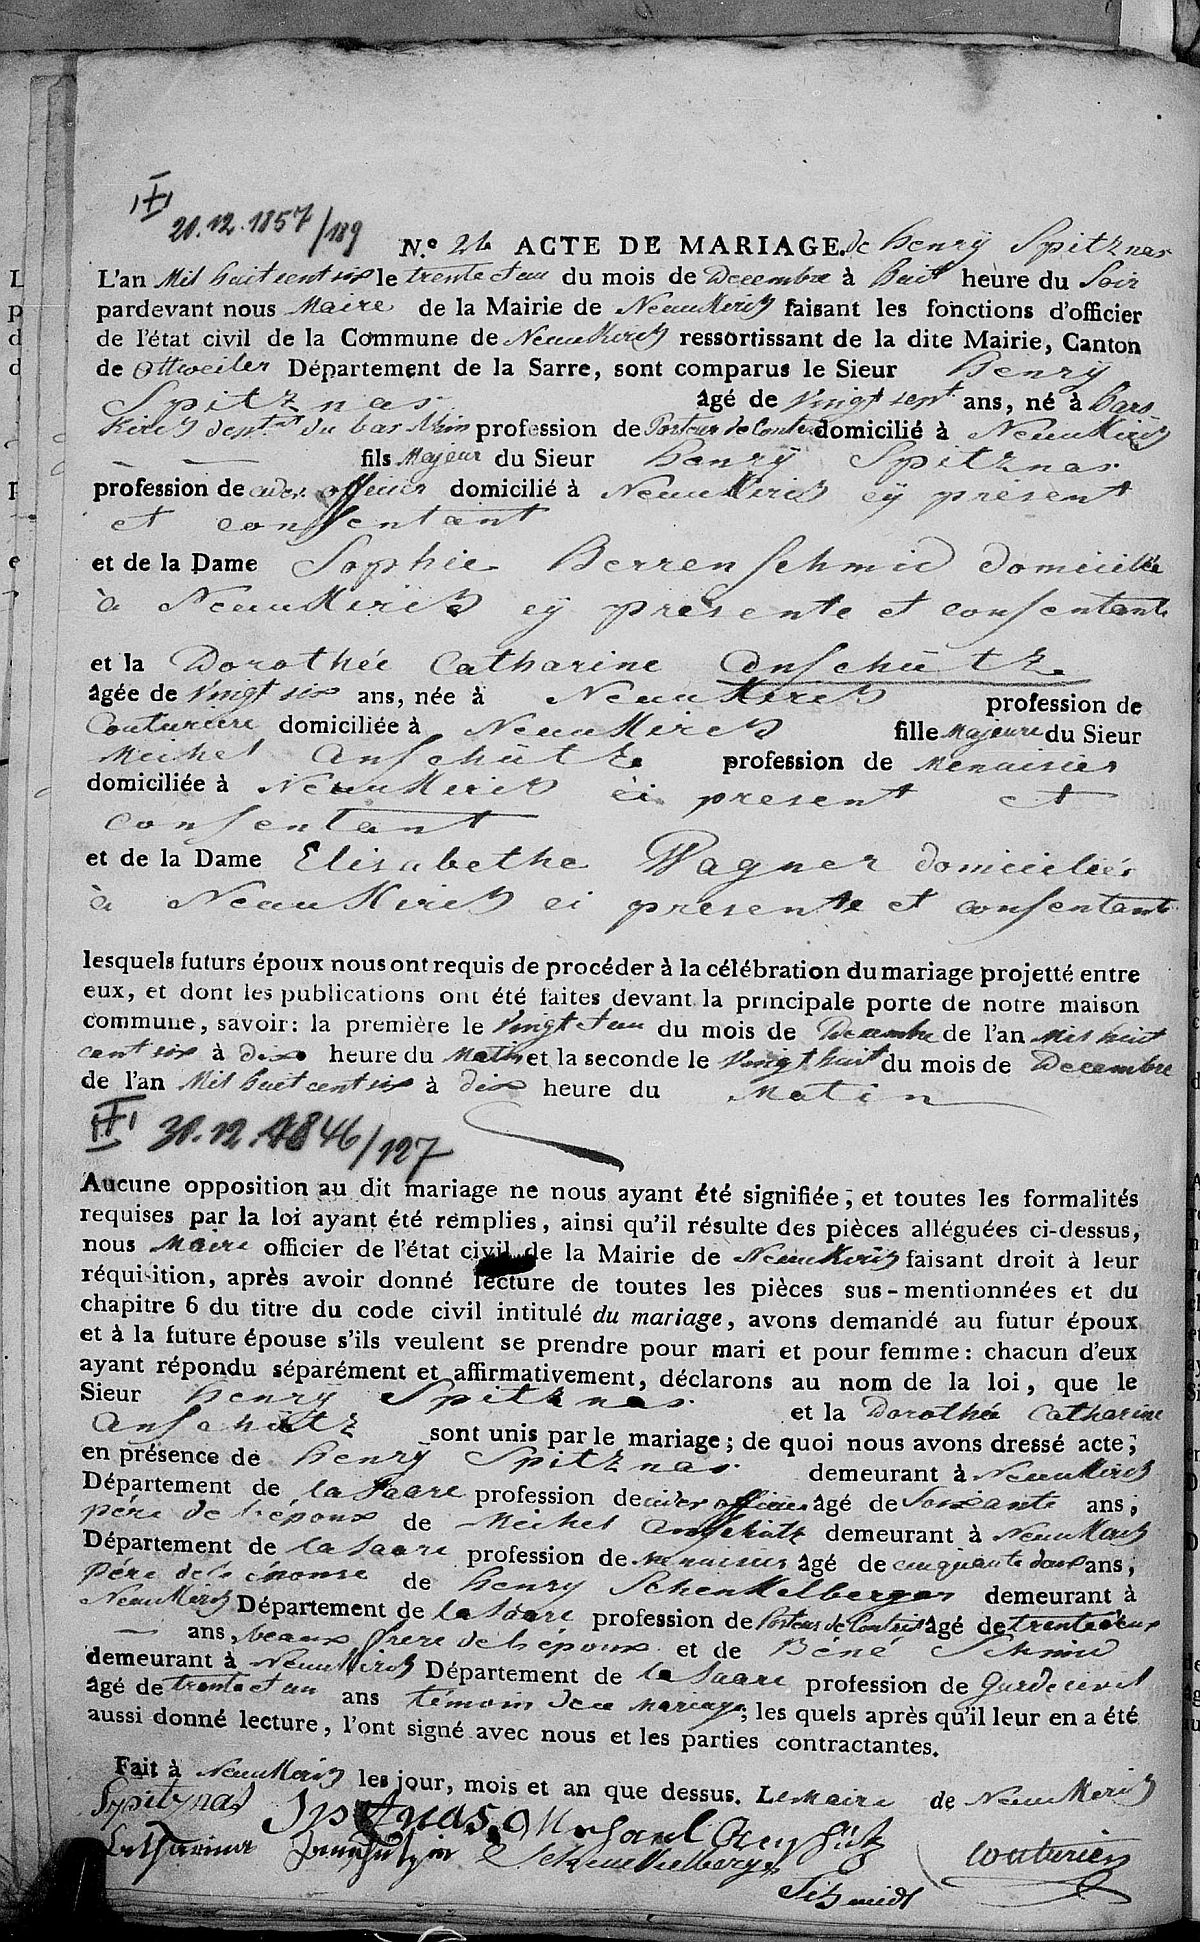 III
20.12.1857/189
N.° 26 ACTE DE MARIAGE. de henrÿ Spitznas
L'an Mil huit cent six le trente et un du mois de Decembre à huit heure du Soir
pardevant nous Maire de la Mairie de Neunkirch faisant les fonctions d'officier
de l'état civil de la Commune de Neunkirch ressortissant de la dite Mairie, Canton
de Ottweiler Département de la Sarre, sont comparus le Sieur henrÿ
Spitznas âgé de Vingt sept ans, né à
du bas Rhin profession de domicilié à Neunkirch
fils Majeur du Sieur henrÿ Spitznas
profession de domicilié à Neunkirch cÿ présent
et consentant
et de la Dame Sophie Berrenschmid domiciliée
à Neunkirch cÿ présente et consentante
et la Dorothée Catharine Anschütz
âgée de Vingt six ans, née à Neunkirch profession de
Couturiere domiciliée à Neunkirch fille Majeure du Sieur
Meichel Anschütz profession de Menuisier
domiciliée à Neunkirch ci present et
consentant
et de la Dame Elisabethe Wagner domiciliée
à Neunkirch ci presente et consentante
lesquels futurs époux nous ont requis de procéder à la célébration du mariage projetté entre
eux, et dont les publications ont été faites devant la principale porte de notre maison
commune, savoir: la première le Vingt et un du mois de Decembre de l'an Mil huit
cent six à dix heure du Matin et la seconde le Vingt huit du mois de Decembre
de l'an Mil huit cent six à dix heure du Matin
III 30.12.1846/127
Aucune opposition au dit mariage ne nous ayant été signifiée, et toutes les formalités
requises par la loi ayant été remplies, ainsi qu'il résulte des pièces alléguées ci-dessus,
nous Maire officier de l'état civil de la Mairie de Neunkirch faisant droit à leur
réquisition, après avoir donné lecture de toutes les pièces sus-mentionnées et du
chapitre 6 du titre du code civil intitulé du mariage, avons demandé au futur époux
et à la future épouse s'ils veulent se prendre pour mari et pour femme: chacun d'eux
ayant répondu séparément et affirmativement, déclarons au nom de la loi, que le
Sieur henrÿ Spitznas et la Dorothée Catharine
Anschütz sont unis par le mariage; de quoi nous avons dressé acte;
en présence de henrÿ Spitznas demeurant à Neunkirch
Département de la Saare profession de âgé de Soixante ans;
père de l'époux de Meichel Anschütz demeurant à Neunkirch
Département de la Saare profession de Menuisier âgé de cinquante deux ans,
père de l'épouse de henry Schenkelberger demeurant à
Neunkirch Département de la Saare profession de âgé de trente deux
ans, beaux frere de l'époux et de Béné Schmid
demeurant à Neunkirch Département de la Saare profession de
âgé de trente et un ans temoins de ce Mariage; les quels après qu'il leur en a été
aussi donné lecture, l'ont signé avec nous et les parties contractantes.
Fait à Neunkirch les jour, mois et an que dessus. Le Maire de Neunkirch
Spitznas Spitznas Michael Anschütz
Catharina Anschützin Schenkelberger Couturier
Schmidt